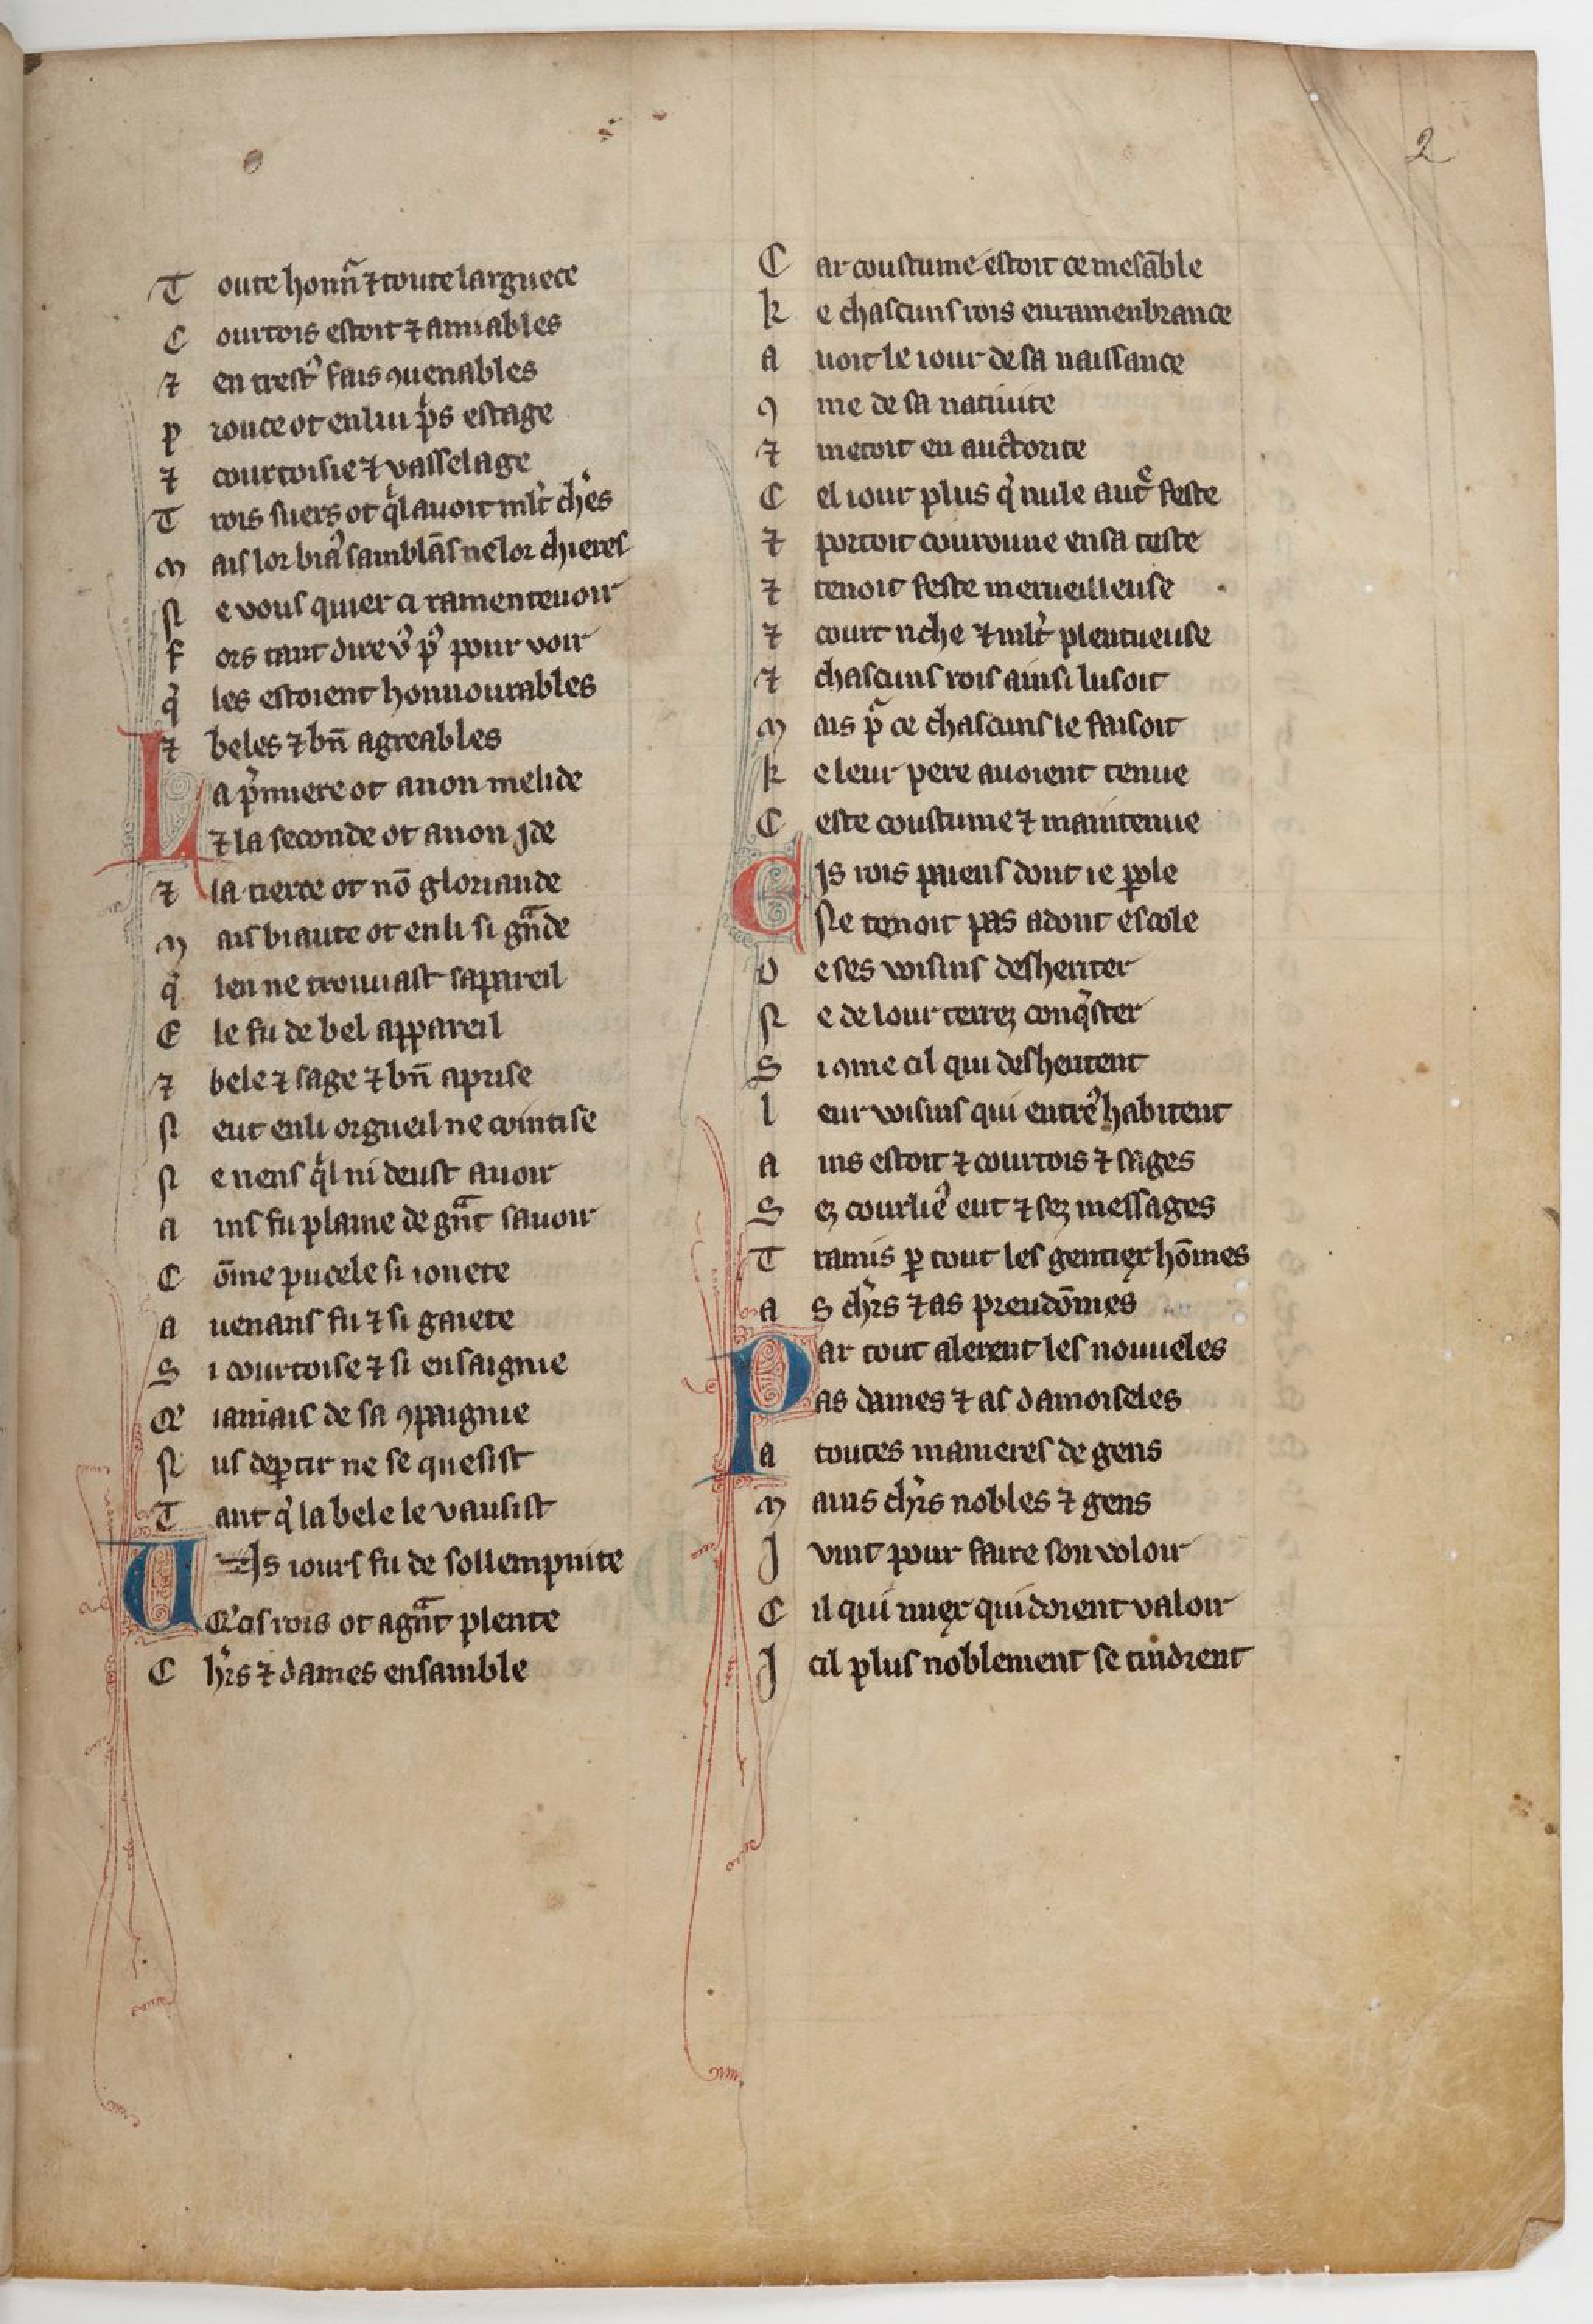 2
Toute honn̄ ⁊ toute larguece
Courtois estoit ⁊ amiables
⁊ en trest' fais ꝯuenables
Prouce ot en lui p's estage
⁊ courtoisie ⁊ vasselage
Trois suers ot q'l auoit ml't ch'es
Mais lor bia' samblās ne lor chieres
Ne vous quier ci ramenteuoir
Fors tant dire v' p' pour voir
q'les estoient honnourables
⁊ beles ⁊ bn̄ agreables
La p'miere ot a non melide
⁊ la seconde ot a non jde
⁊ la tierce ot nō gloriande
Mais biaute ot en li si gn̄de
q' len ne trouuast sa pareil
Ele fu de bel appareil
⁊ bele ⁊ sage ⁊ bn̄ aprise
Neut en li orgueil ne cointise
Ne riens q'l ni deust auoir
Ains fu plaine de gn̄t sauoir
Cōme pucele si ionete
Auenans fu ⁊ si gaiete
Si courtoise ⁊ si ensaignie
Q' iamais de sa ꝯpaignie
Nus deꝑtir ne se quesist
Tant q' la bele le vausist
Uis iours fu de sollempnite
Q' cis rois ot a gn̄t plente
Ch'rs ⁊ dames ensamble
Car coustume estoit ce me sāble
Ke chascuns rois en ramenbrance
Auoit le iour de sa naissance
ꝯme de sa natiuite
⁊ metoit en auctorite
Cel iour plus q' nule aut'e feste
⁊ portoit couronne en sa teste
⁊ tenoit feste merueilleuse
⁊ court riche ⁊ ml't plentueuse
⁊ chascuns rois ainsi lusoit
Mais p' ce chascuns le faisoit
Ke leur pere auoient tenue
Ceste coustume ⁊ maintenue
Cis rois paiens dont ie ꝑole
Ne tenoit pas adont escole
De ses voisins desheriter
Ne de lour terrez conq'ster
Si ꝯme cil qui desheritent
leur voisins qui entre' habitent
Ains estoit ⁊ courtois ⁊ sages
Sez courlie' eut ⁊ sez messages
Tramis ꝑ tout les gentiex hōmes
As ch'rs ⁊ as preudōmes
Par tout alerent les nouueles
As dames ⁊ as damoiseles
A toutes manieres de gens
Mains ch'rs nobles ⁊ gens
J vint pour faire son voloir
Cil qui miex quidoient valoir
J cil plus noblement se tindrent